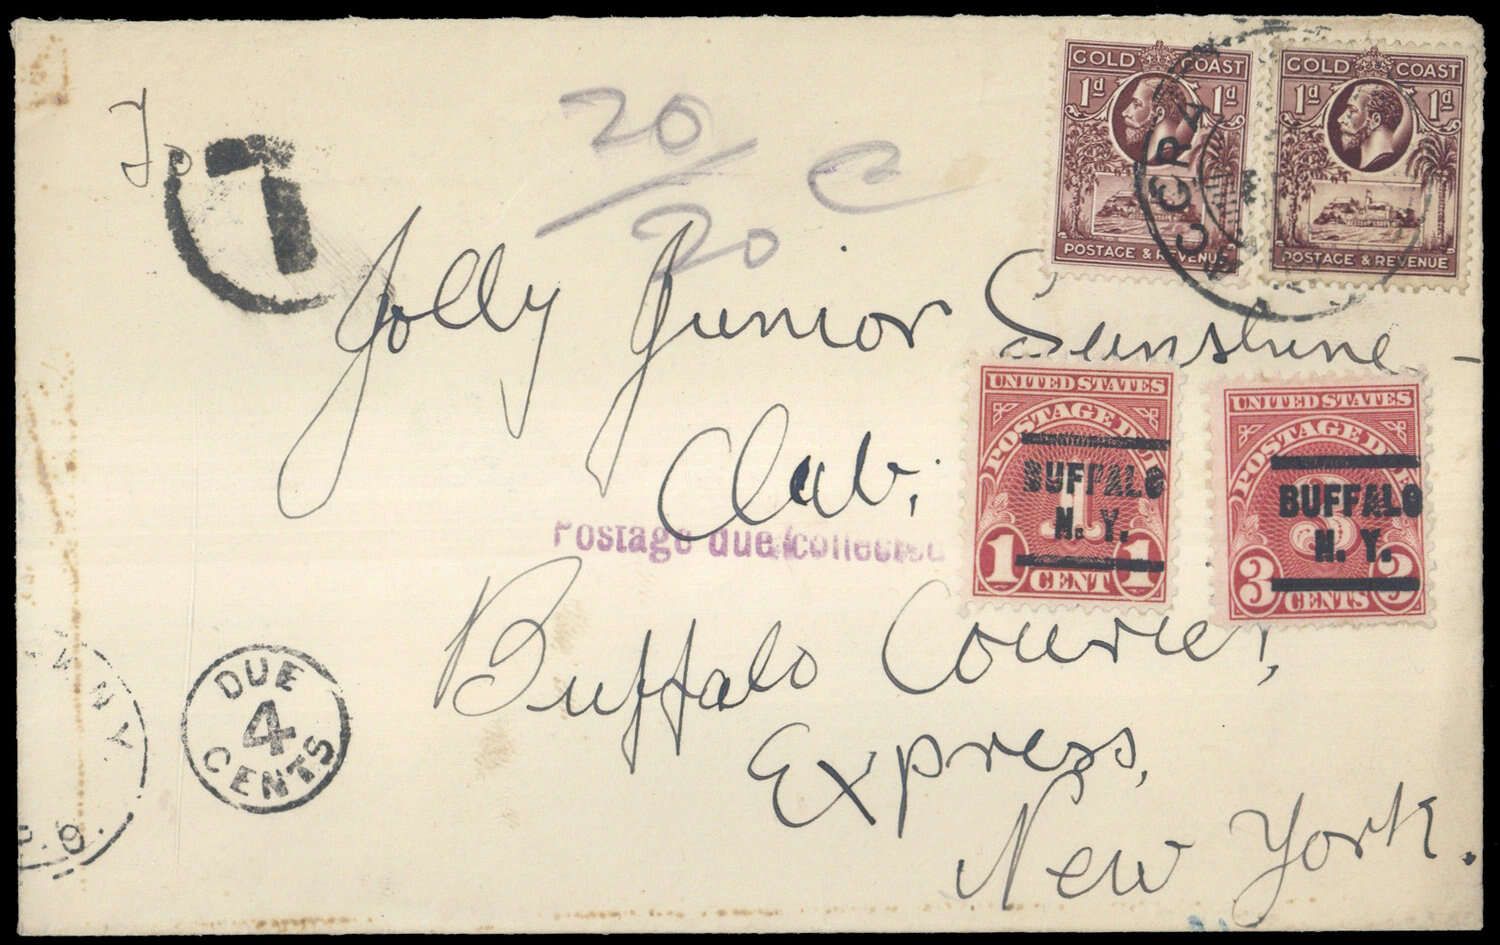 GOLD COAST
1d 1d
POSTAGE & REVENUE
GOLD COAST
1d 1d
POSTAGE & REVENUE
ACCRA
To
T
20/20 C
Jolly Junior Sunshine-
Club,
UNITED STATES
POSTAGE DUE
BUFFALO
N. Y.
1 CENT 1
UNITED STATES
POSTAGE DUE
BUFFALO
N. Y.
3 CENTS 3
Postage due collected
Buffalo Courier,
Express,
New York.
DUE
4
CENTS
N.Y.